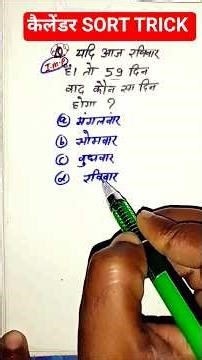 कैलेंडर SORT TRICK
Q. यदि आज रविवार
I.M.P. है। तो 59 दिन
बाद कौन सा दिन
होगा ?
(a) मंगलवार
(b) सोमवार
(c) बुधवार
(d) रविवार